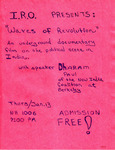 I.R.O. PRESENTS:
"Waves of Revolution"
An underground documentary
film on the political scene in
India.
with speaker DHARAM
Paul
of the new India
Coalition at
Berkeley
Thurs/Jan. 13
HH 1006
7:00 PM
ADMISSION
FREE!